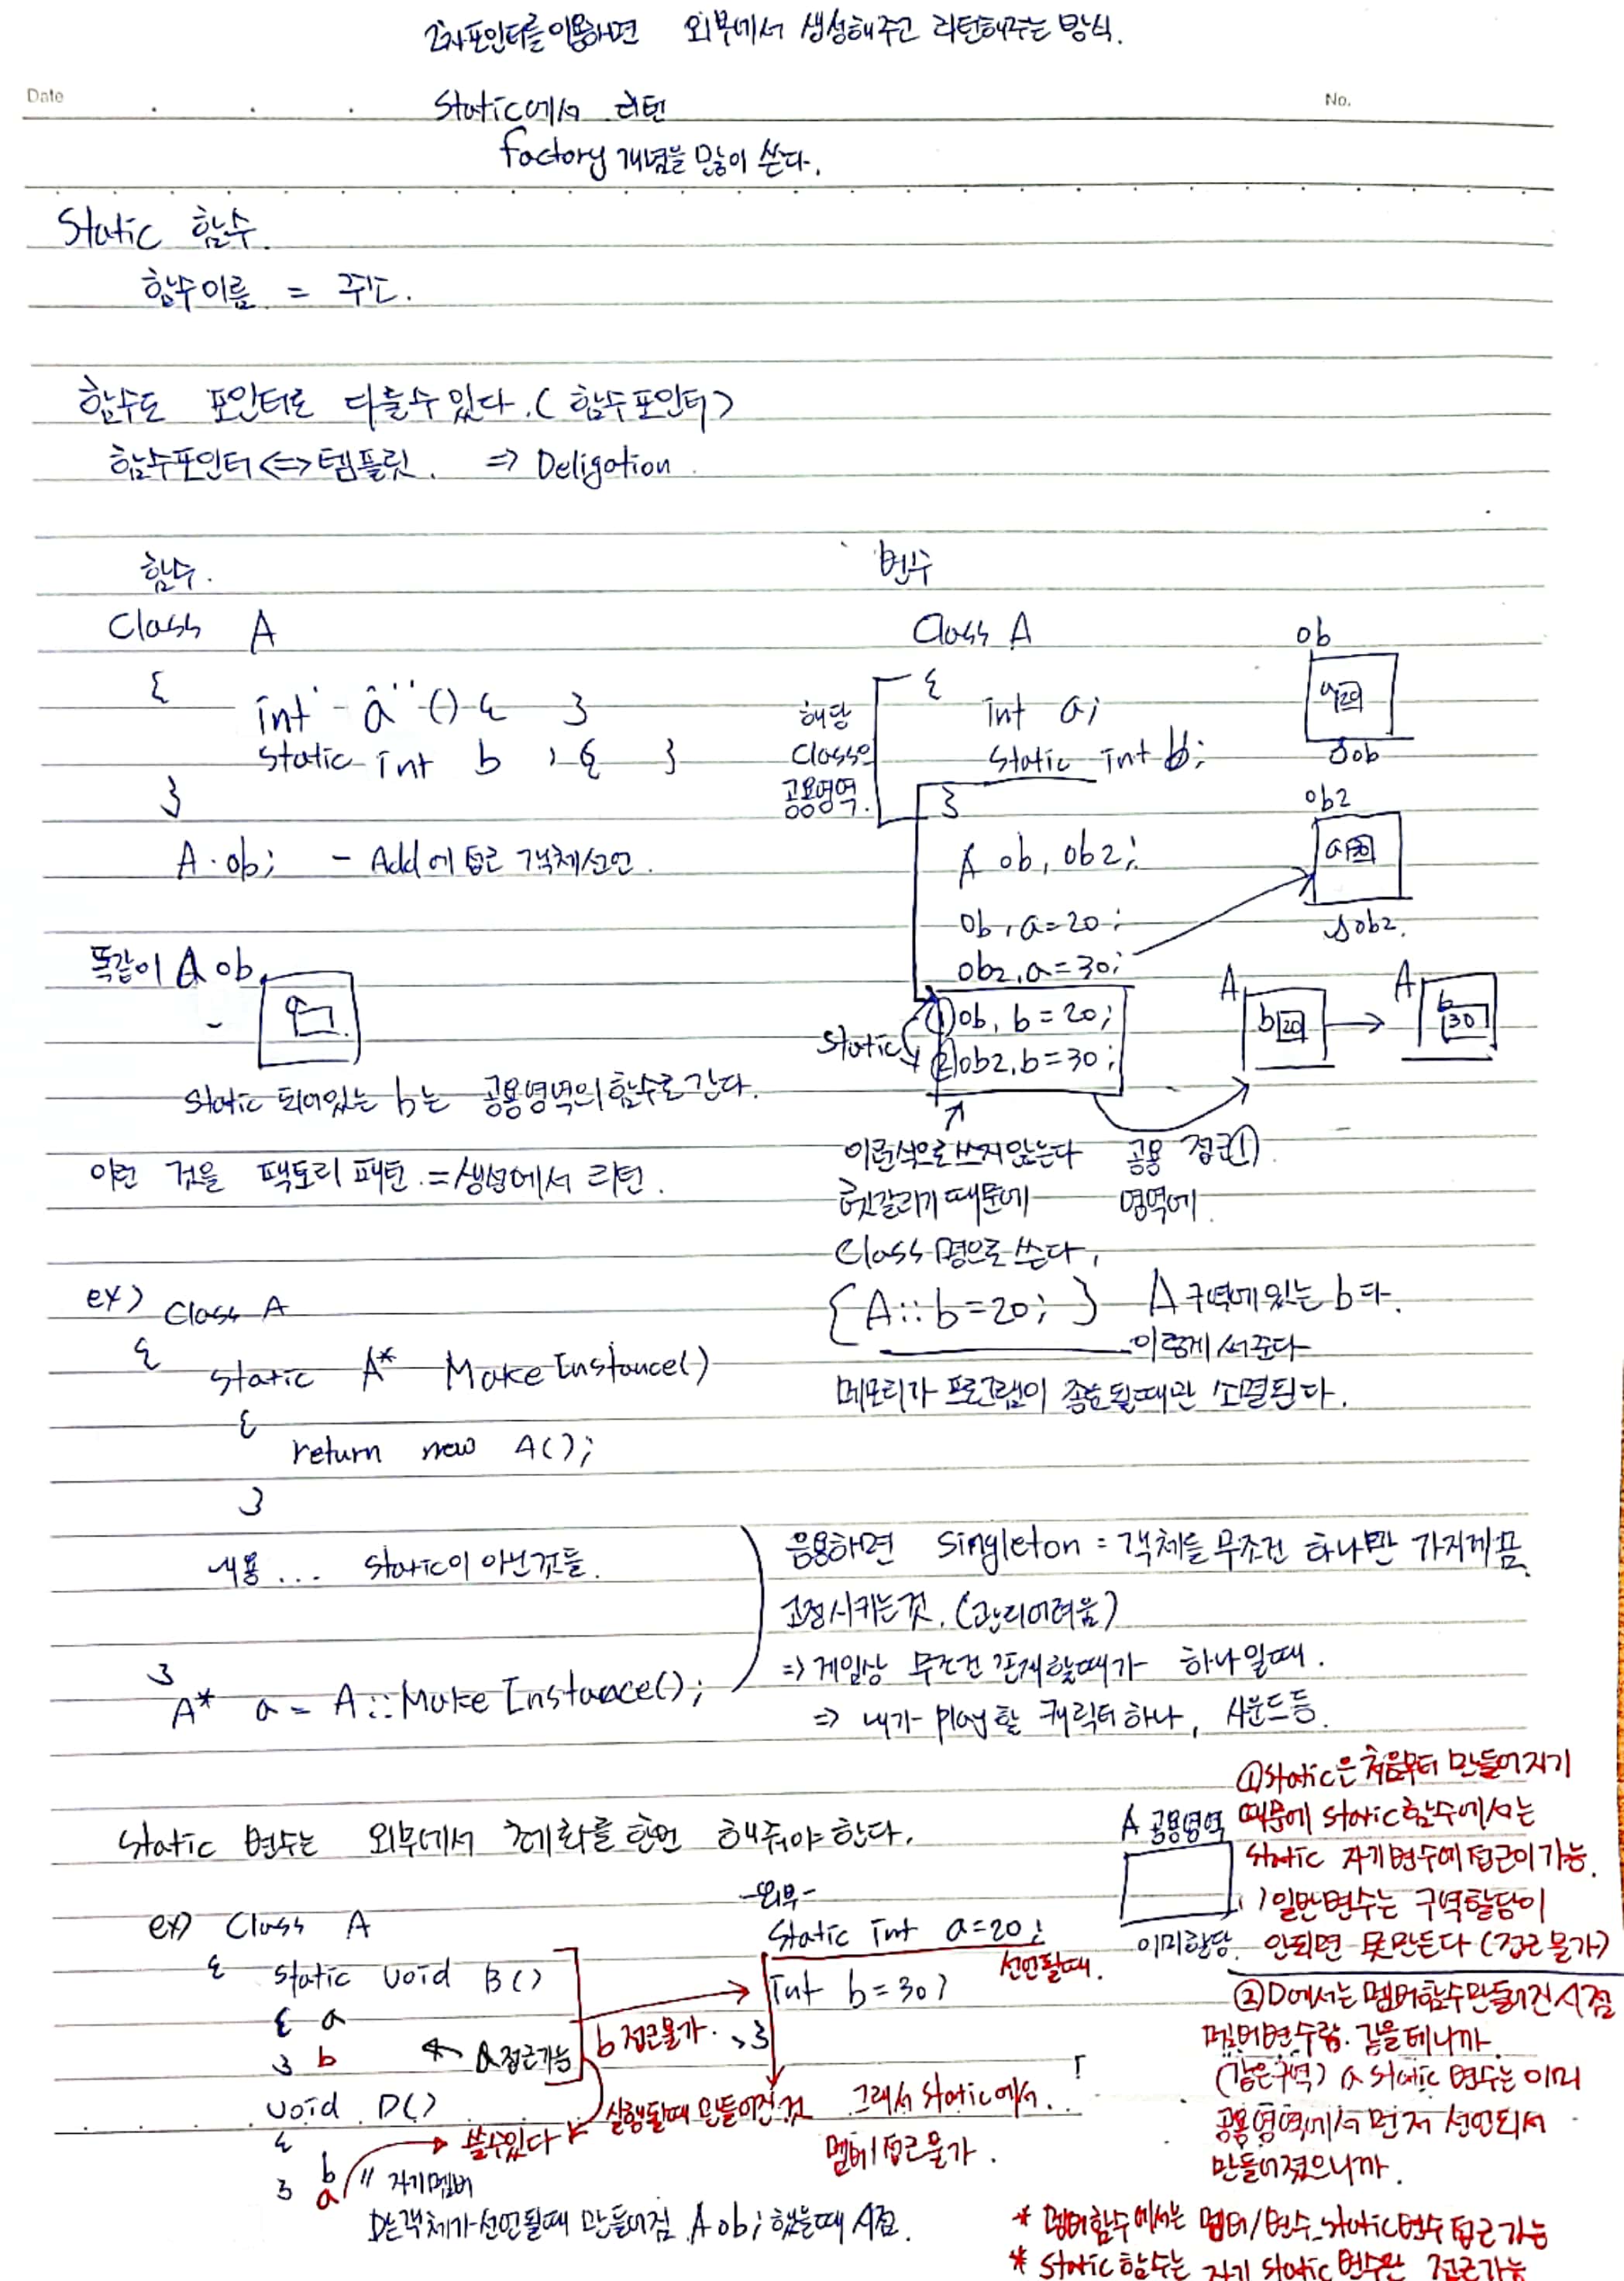 2차포인터를 이용하면 외부에서 생성해주고 리턴해주는 방식.
Date
No.
Static에서 리턴
factory 개념을 많이 쓴다.
Static 함수.
함수이름 = 주소.
함수도 포인터로 다룰수 있다. (함수포인터)
함수포인터 <=> 템플릿. => Deligation.
함수.
Class A
{
int a () { }
static int b , { }
}
A ob; - Add에 접근 객체선언.
똑같이 A ob.
a
static 되어있는 b는 공용영역의 함수로 간다.
이런 것을 팩토리 패턴. = 생성에서 리턴.
ex) Class A
{
static A* MakeInstance()
{
return new A();
}
내용 ... static이 아닌것들.
}
A* a = A::MakeInstance();
변수
Class A
{
int a;
static int b;
}
해당
Class의
공용영역.
A ob, ob2;
ob.a=20;
ob2.a=30;
static
① ob. b=20;
② ob2.b=30;
ob
a 20
ob2
a 30
A
b 20
A
b 30
이런식으로 쓰지 않는다
헷갈리기 때문에
Class 명으로 쓴다.
공용 접근①
영역에.
{A::b=20; } A 구역에 있는 b다.
이렇게 써준다
메모리가 프로그램이 종료될때만 소멸된다.
응용하면 Singleton = 객체를 무조건 하나만 가지게끔
고정시키는것. (관리어려움)
=> 게임상 무조건 존재할때가 하나일때.
=> 내가 play할 캐릭터 하나, 사운드등.
Static 변수는 외부에서 초기화를 한번 해줘야 한다.
ex) Class A
{ static void B()
{ a
} b
a 접근가능
b 접근불가.
void D()
{
b
} a
" 자기멤버
쓸수있다
실행될때 만들어진 것
D는 객체가 선언될때 만들어짐. A ob; 했을때 시점.
-외부-
Static int a=20;
선언될때.
int b=30;
}
그래서 static에서
멤버 접근불가.
A 공용영역
이미할당.
①static은 처음부터 만들어지기
때문에 static 함수에서는
static 자기변수에 접근이 가능.
일반변수는 구역할당이
안되면 못만든다 (접근불가)
②D에서는 멤버함수만들어진 시점
멤버변수랑 같을테니까
(같은구역) a static 변수는 이미
공용영역에서 먼저 선언되서
만들어졌으니까.
* 멤버함수에서는 멤버/변수 static변수 접근 가능
* static 함수는 자기 static 변수만 접근가능